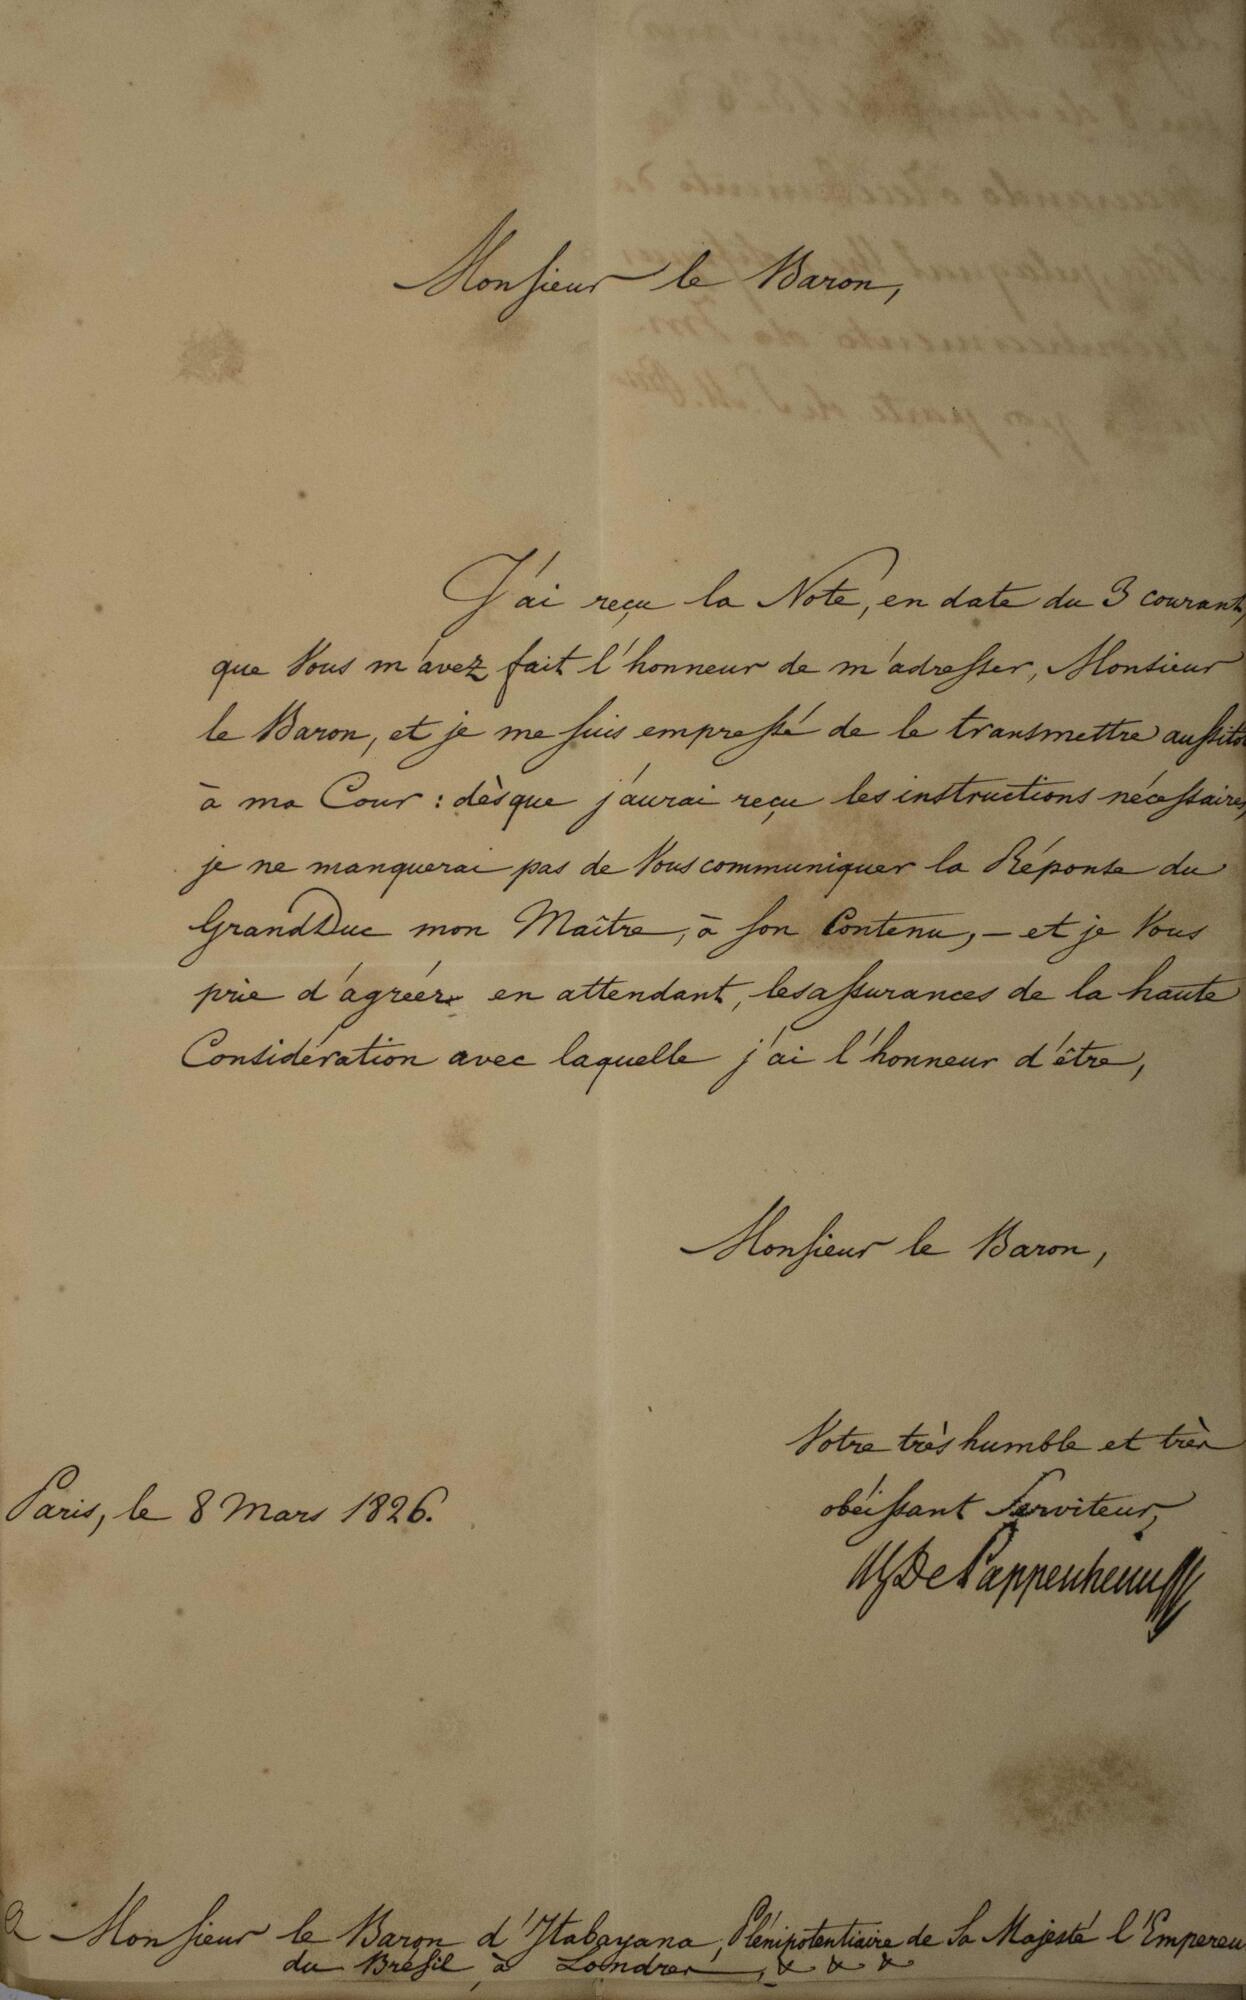 Monsieur le Baron,
J'ai reçu la Note, en date du 3 courant,
que Vous m'avez fait l'honneur de m'adresser, Monsieur
le Baron, et je me suis empressé de le transmettre aussitot
à ma Cour : dès que j'aurai reçu les instructions nécessaires,
je ne manquerai pas de Vous communiquer la Réponse du
Grand Duc mon Maître, à son Contenu, – et je Vous
prie d'agréer en attendant, les assurances de la haute
Considération avec laquelle j'ai l'honneur d'être,
Monsieur le Baron,
Votre très humble et très
obéissant Serviteur,
De Pappenheim
Paris, le 8 Mars 1826.
A Monsieur le Baron d'Itabayana, Plénipotentiaire de Sa Majesté l'Empereu
du Brésil, à Londres